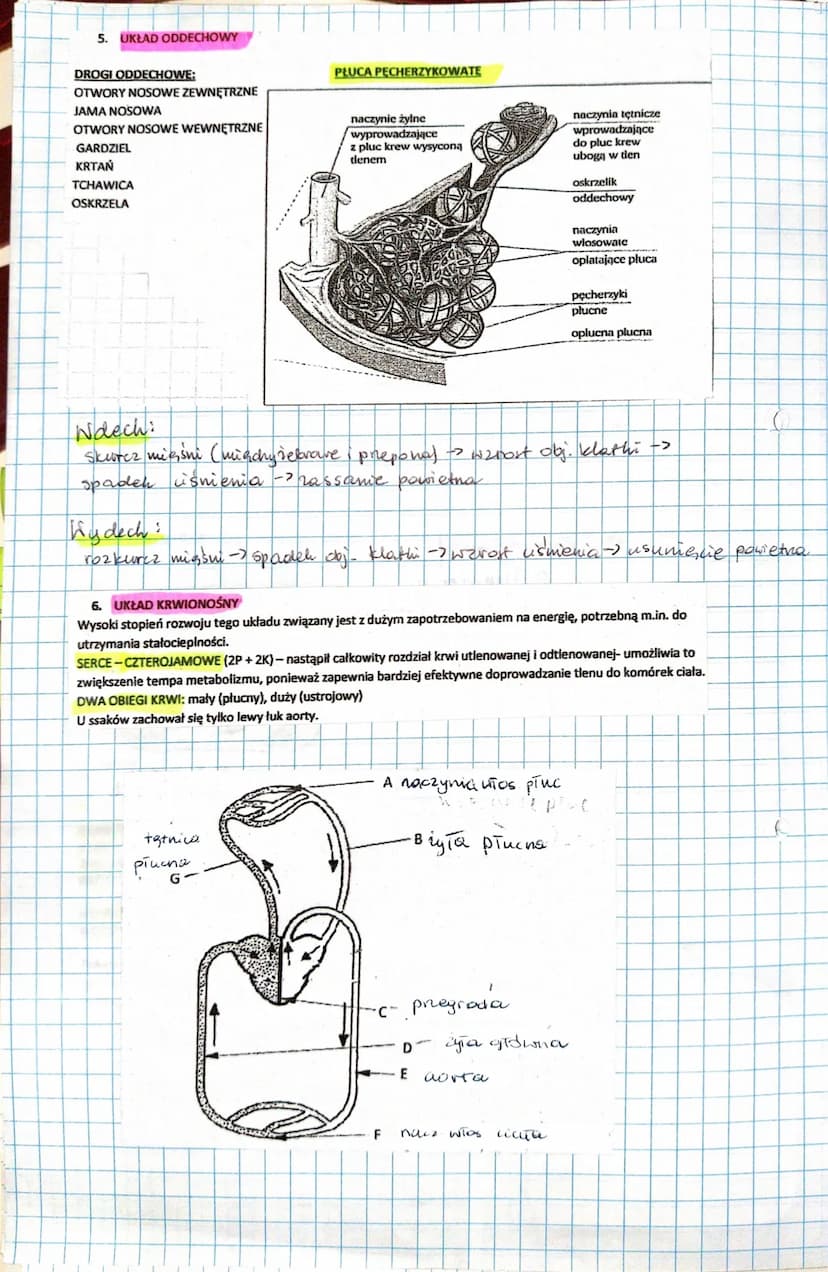 5. UKŁAD ODDECHOWY
DROGI ODDECHOWE:
OTWORY NOSOWE ZEWNĘTRZNE
JAMA NOSOWA
OTWORY NOSOWE WEWNĘTRZNE
GARDZIEL
KRTAŃ
TCHAWICA
OSKRZELA
PŁUCA PĘCHERZYKOWATE
naczynie żylne
wyprowadzające
z płuc krew wysyconą
tlenem
naczynia tętnicze
wprowadzające
do płuc krew
ubogą w tlen
oskrzelik
oddechowy
naczynia
włosowate
oplatające płuca
pęcherzyki
płucne
opłucna płucna
Wdech:
skurcz mięśni (międzyżebrowe i przepona) -> wzrost obj. klatki ->
spadek ciśnienia -> zassanie powietrza
Wydech:
rozkurcz mięśni -> spadek obj. klatki -> wzrost ciśnienia -> usunięcie powietrza
6. UKŁAD KRWIONOŚNY
Wysoki stopień rozwoju tego układu związany jest z dużym zapotrzebowaniem na energię, potrzebną m.in. do
utrzymania stałocieplności.
SERCE – CZTEROJAMOWE (2P + 2K) – nastąpił całkowity rozdział krwi utlenowanej i odtlenowanej- umożliwia to
zwiększenie tempa metabolizmu, ponieważ zapewnia bardziej efektywne doprowadzanie tlenu do komórek ciała.
DWA OBIEGI KRWI: mały (płucny), duży (ustrojowy)
U ssaków zachował się tylko lewy łuk aorty.
A naczynia włos płuc
B żyła płucna
tętnica
płucna
G
C przegroda
D żyła główna
E aorta
F nacz włos ciała